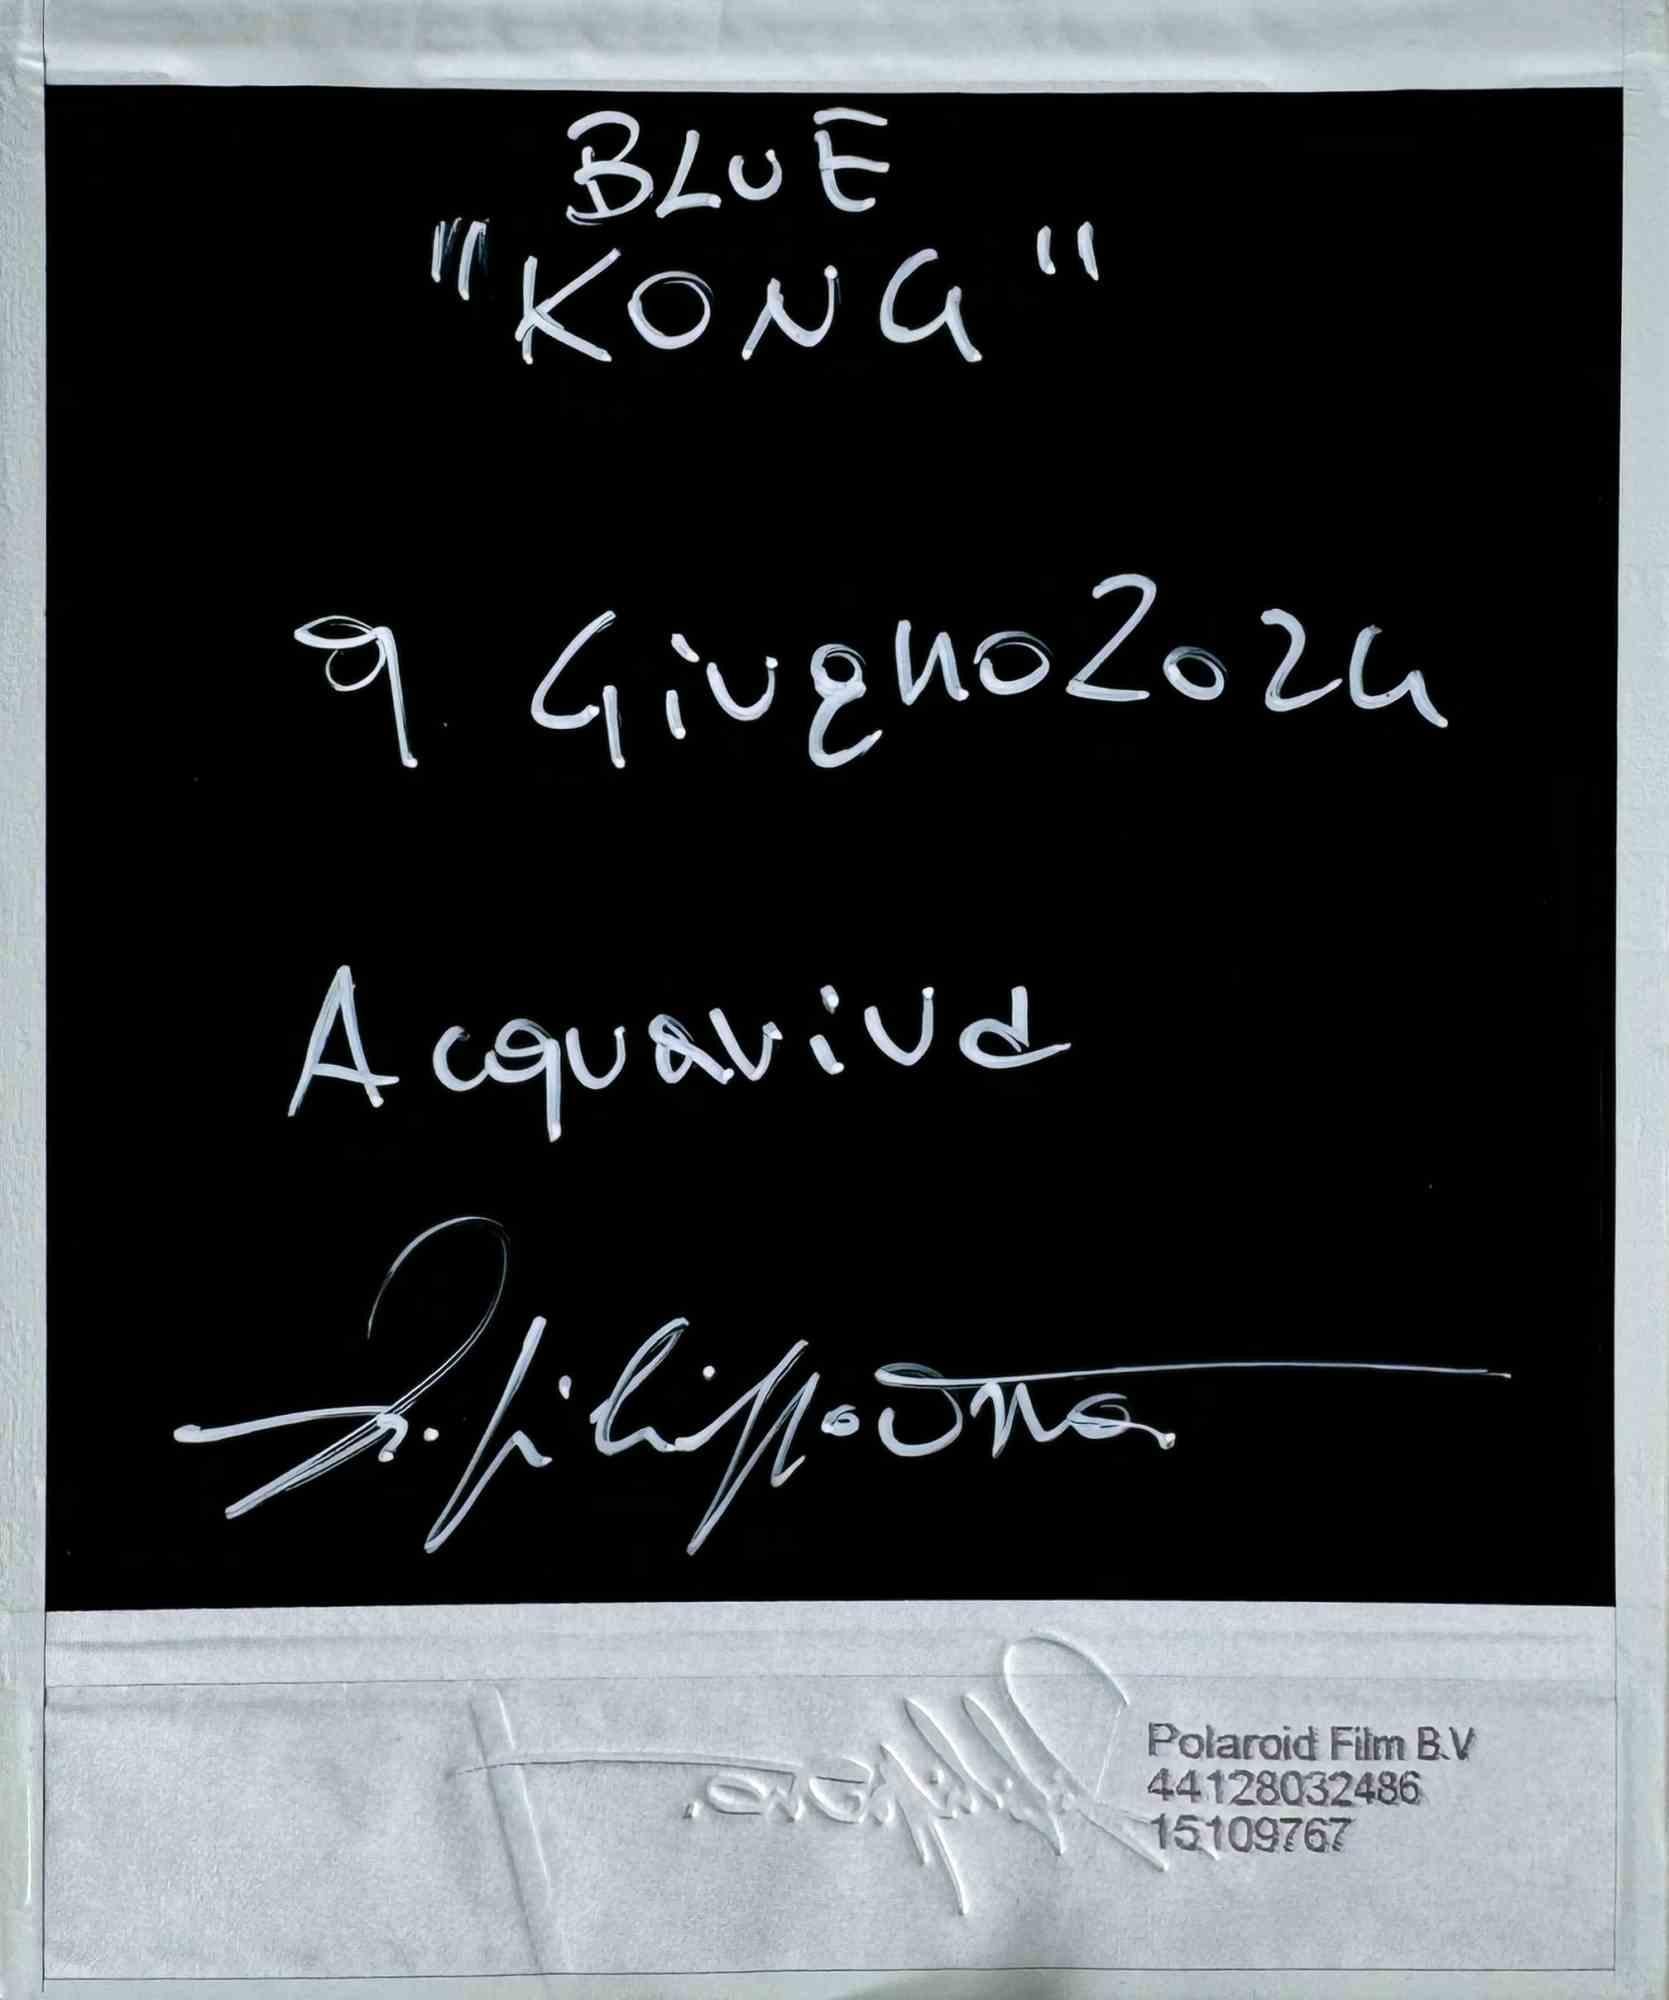 BLUE
"KONG"
9 Giugno 2024
Acquaviva
Polaroid Film B.V
44128032486
15109767